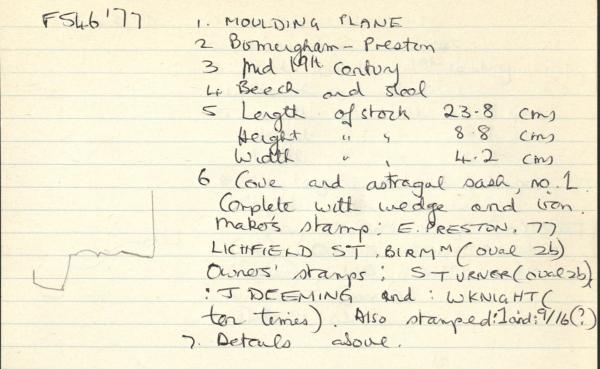 FS46'77
1. MOULDING PLANE
2 Birmingham - Preston
3 Mid 19th Century
4. Beech and steel
5 Length of stock 23.8 cms
Height " " 8.8 cms
Width " " 4.2 cms
6 Cove and astragal sash, no. 1
Complete with wedge and iron.
Maker's stamp: E. PRESTON, 77
LICHFIELD ST, BIRMᴹ (oval 2b)
Owners' stamps: S TURNER (oval 2b)
: J DEEMING and : W KNIGHT (
ten times). Also stamped: 1 and: 9/16 (?)
7. Details above.